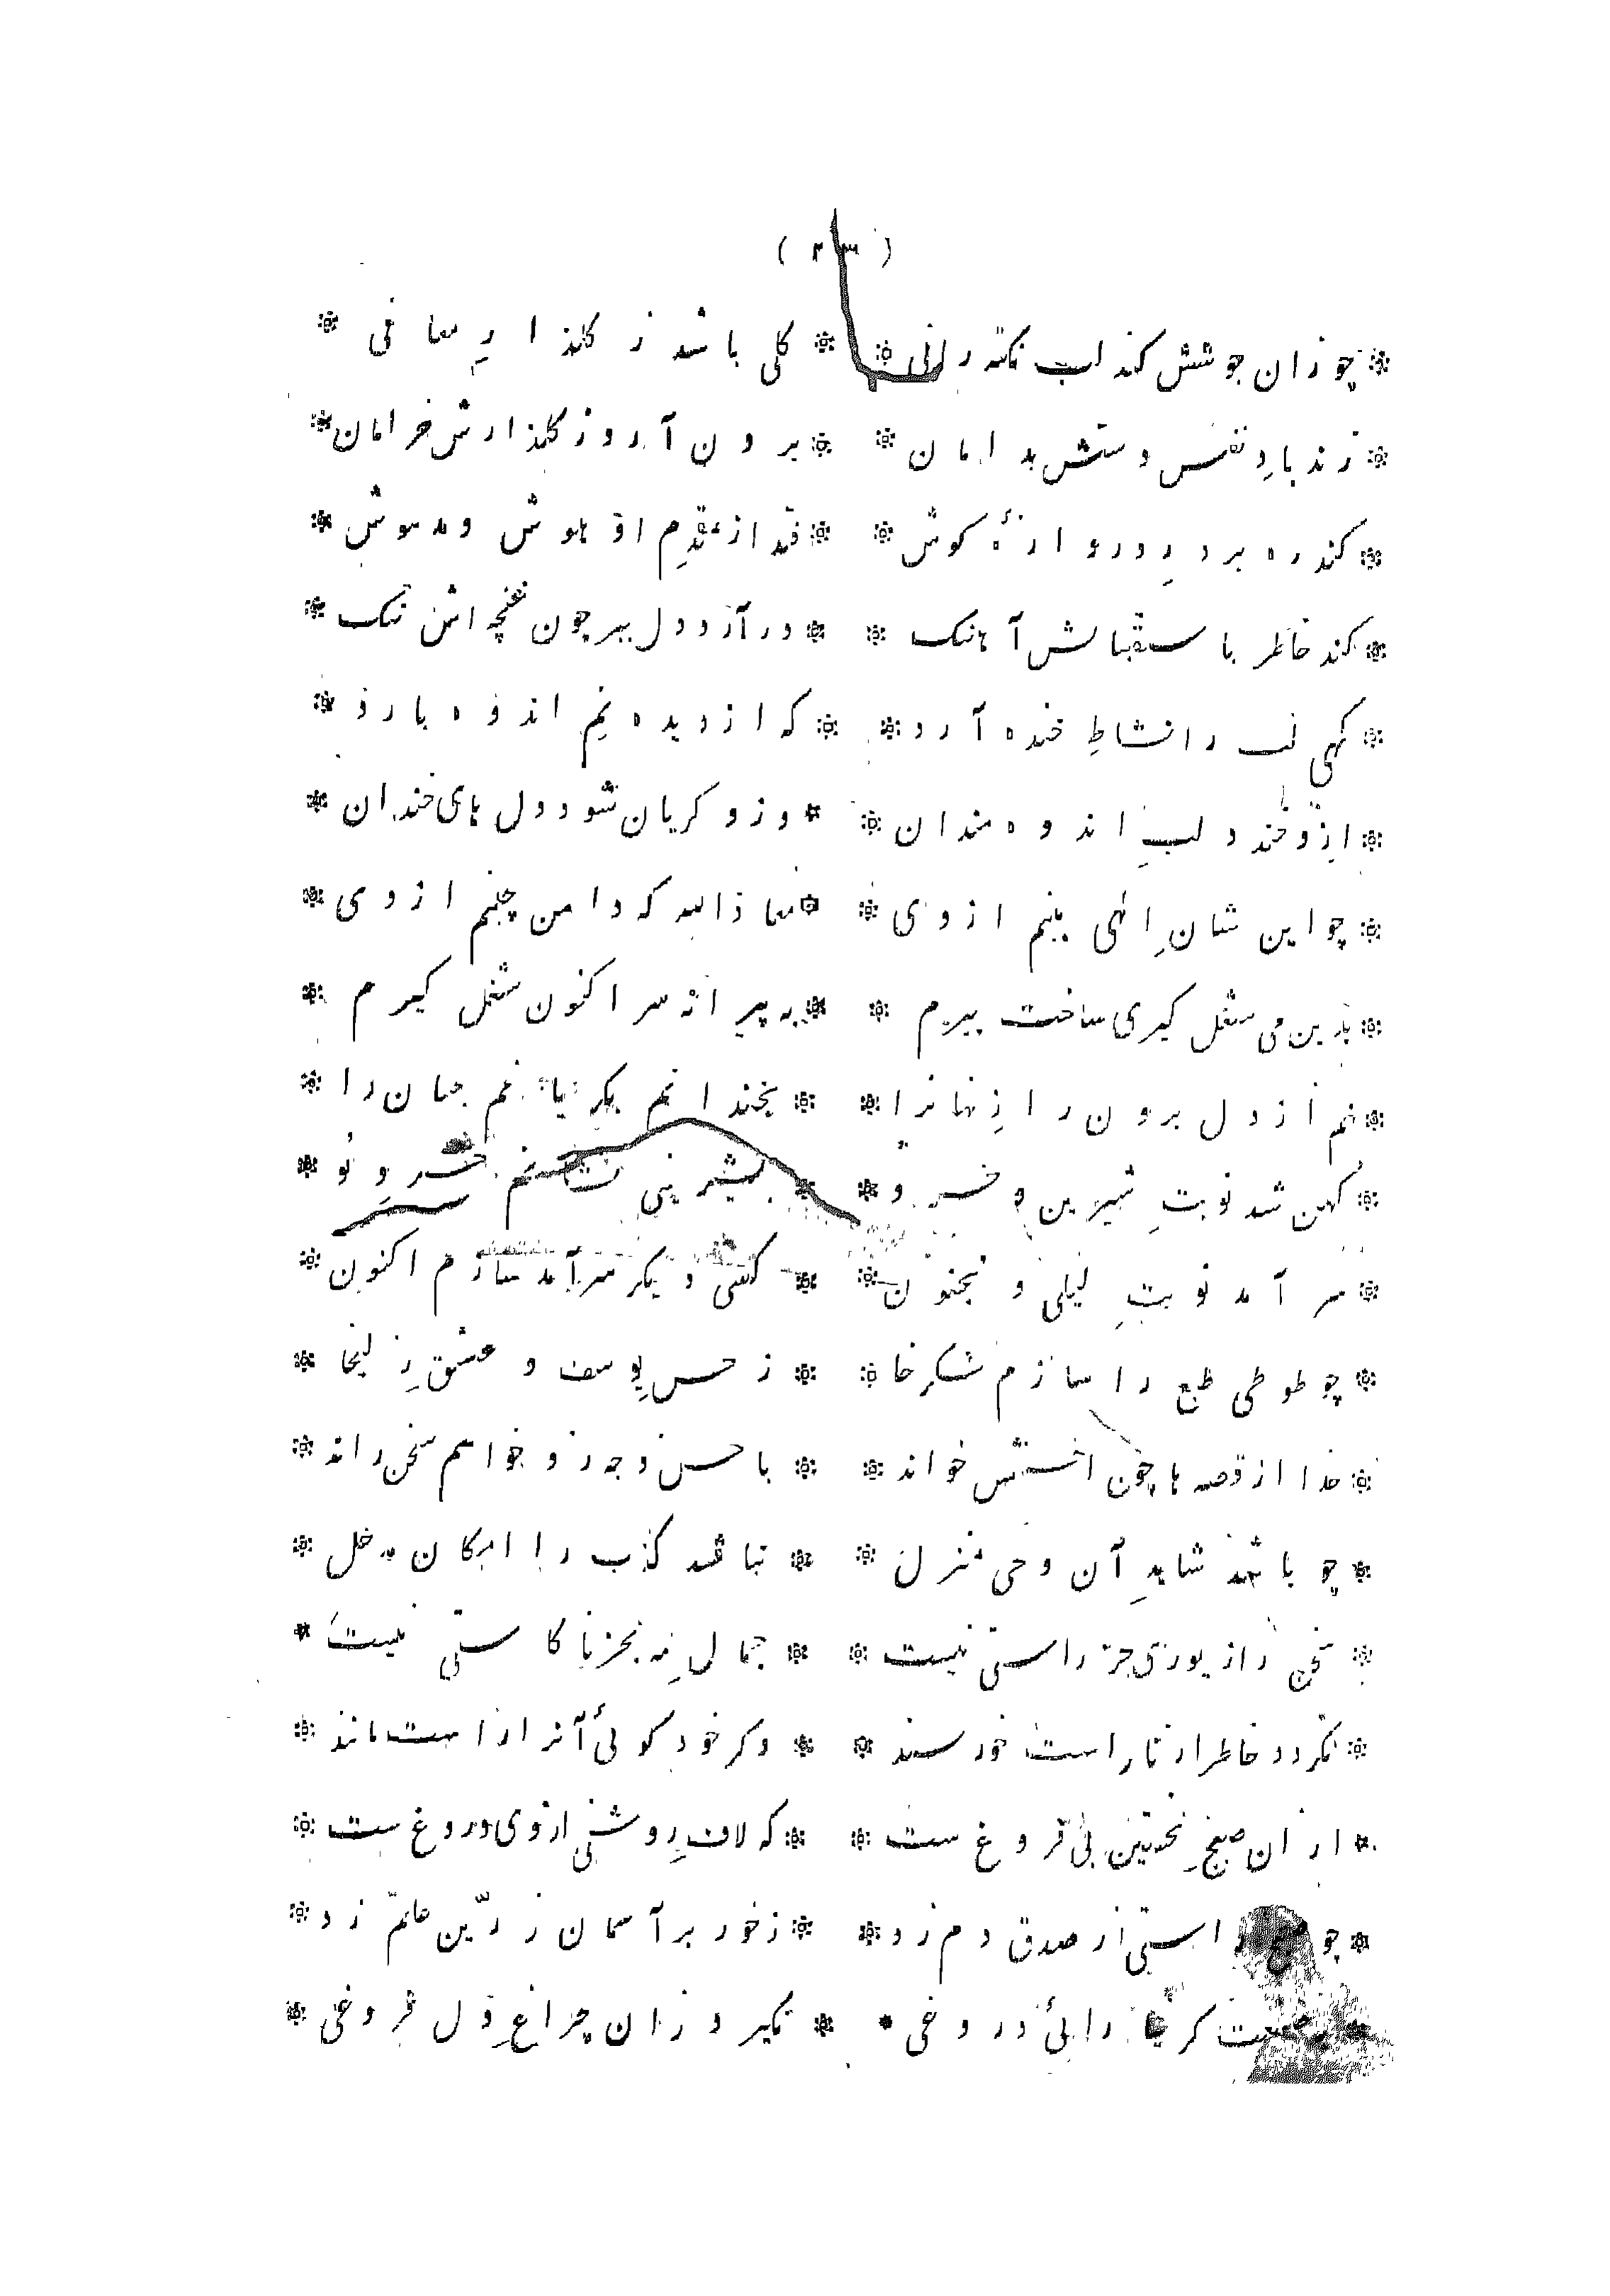 ( ٢٣ )
* چو زان جوشش کند لب نکته رانی * کلی باشد ز کلذار معانی *
* زند باد نفس دستش بدامان * برون آرد ز کلذارش خرامان *
* کند ره بر در دروازهٔ کوش * فتد از مقدم او هوش مدهوش *
* کند خاطر باستقبالش آهنک * در آرد دل ببر چون غنچه اش تنک *
* کهی لب را نشاط خنده آرد * که از دیده نم اندوه بارد *
* ازو خندد لب اندوه مندان * وزو کریان شود دل های خندان *
* چو این شان الهی بینم از وی * معاذ الله که دامن چینم از وی *
* بدین می شغل کیری ساخت پیرم * به پیرانه سر اکنون شغل کیرم *
* نم از دل برون راز نهانرا * بخندانم بکریانم جهان را *
* کهن شد نوبت شیرین و خسرو * بشیرینی نشانم خسرو نو *
* سر آمد نوبت لیلی و مجنون * کسی دیکر سر آمد سازم اکنون *
* چو طوطی طبع را سازم شکر خا * ز حسن یوسف و عشق زلیخا *
* خدا از قصه ها چون احسنش خواند * باحسن وجه زو خواهم سخن راند *
* چو باشد شاهد آن وحی منزل * نباشد کذب را امکان مدخل *
* سخن را زیوری جز راستی نیست * جمال مه بجز نا کاستی نیست *
* نکردد خاطر از ناراست خورسند * وکر خود کوئی آنرا راست مانند *
* از ان صبح نخستین بی فروغ ست * که لاف روشنی از وی دروغ ست *
* چو صبح راستی از صدق دم زد * ز خور بر آسمان زرّین علم زد *
کر رائی دروغی * نکیرد زان چراغ دل فروغی *